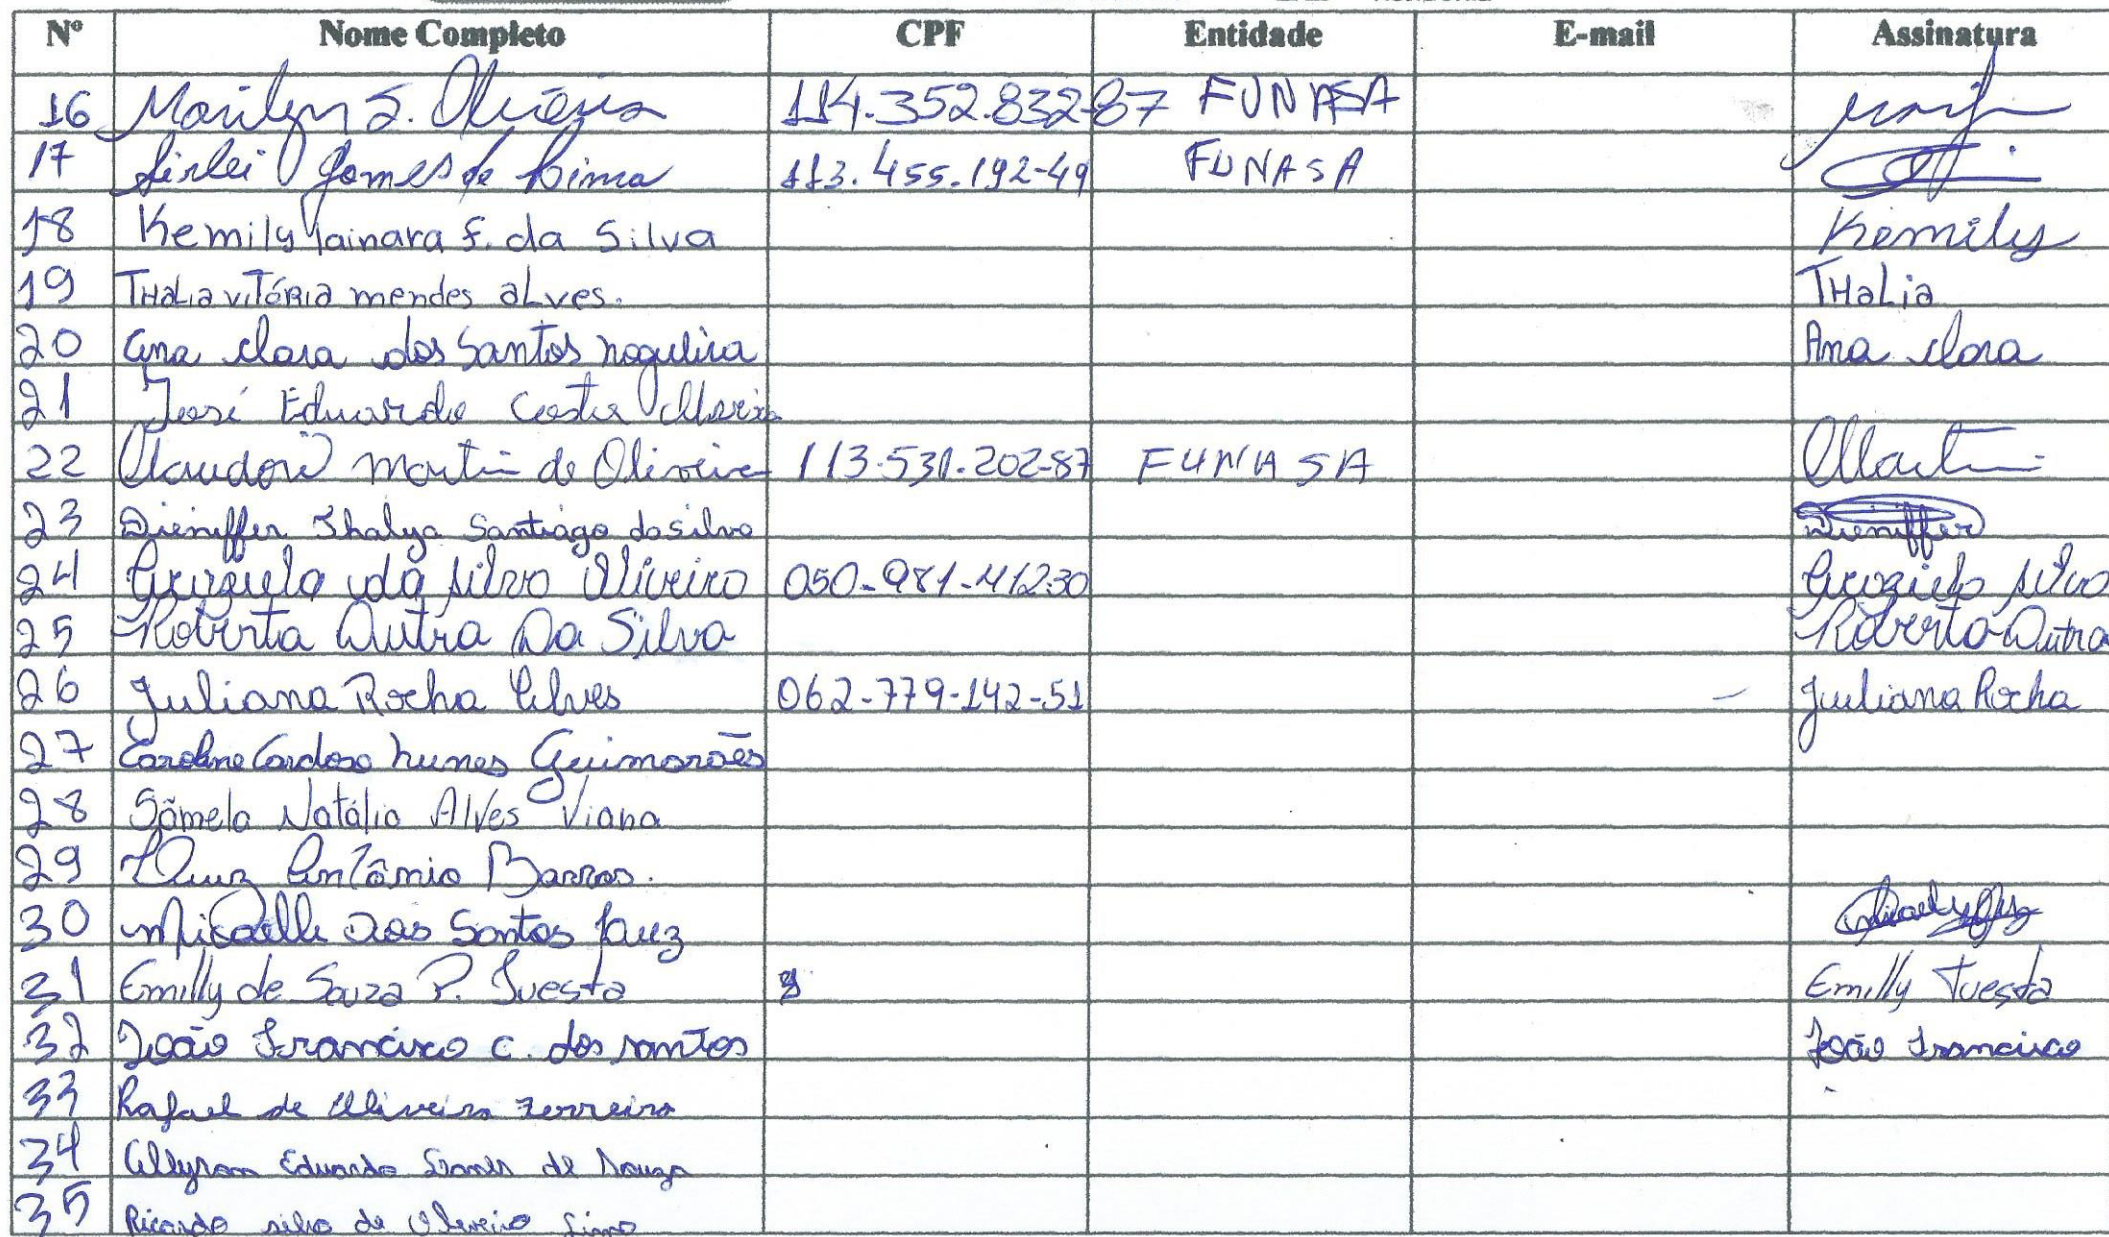 Nº Nome Completo CPF Entidade E-mail Assinatura
16 Marilyn S. Oliveira 114.352.832-87 FUNASA
17 Sirlei Gomes de Lima 113.455.192-49 FUNASA
18 Kemily Tainara F. da Silva Kemily
19 THaLia viTÓRia mendes aLves. THaLia
20 Ana Clara dos Santos nogueira Ana Clara
21 José Eduardo Costa
22 Claudori Martin de Oliveira 113.531.202-87 FUNASA Martin
23 Dieniffer Thalya Santiago da silva Dieniffer
24 Graziela da silva Oliveira 050-981-412-30 Graziela silva
25 Roberta Dutra Da Silva Roberta Dutra
26 Juliana Rocha Alves 062-779-142-51 — Juliana Rocha
27 Caroline Cardoso nunes Guimarães
28 Sâmela Natália Alves Viana
29 Luiz Antônio Barros.
30 Micaelle dos Santos
31 Emilly de Souza P. Tuesta Emilly Tuesta
32 João Francisco C. dos santos João Francisco
33 Rafael de Oliveira Ferreira
34 Eduardo de Souza
35 Ricardo silva de Oliveira Lima